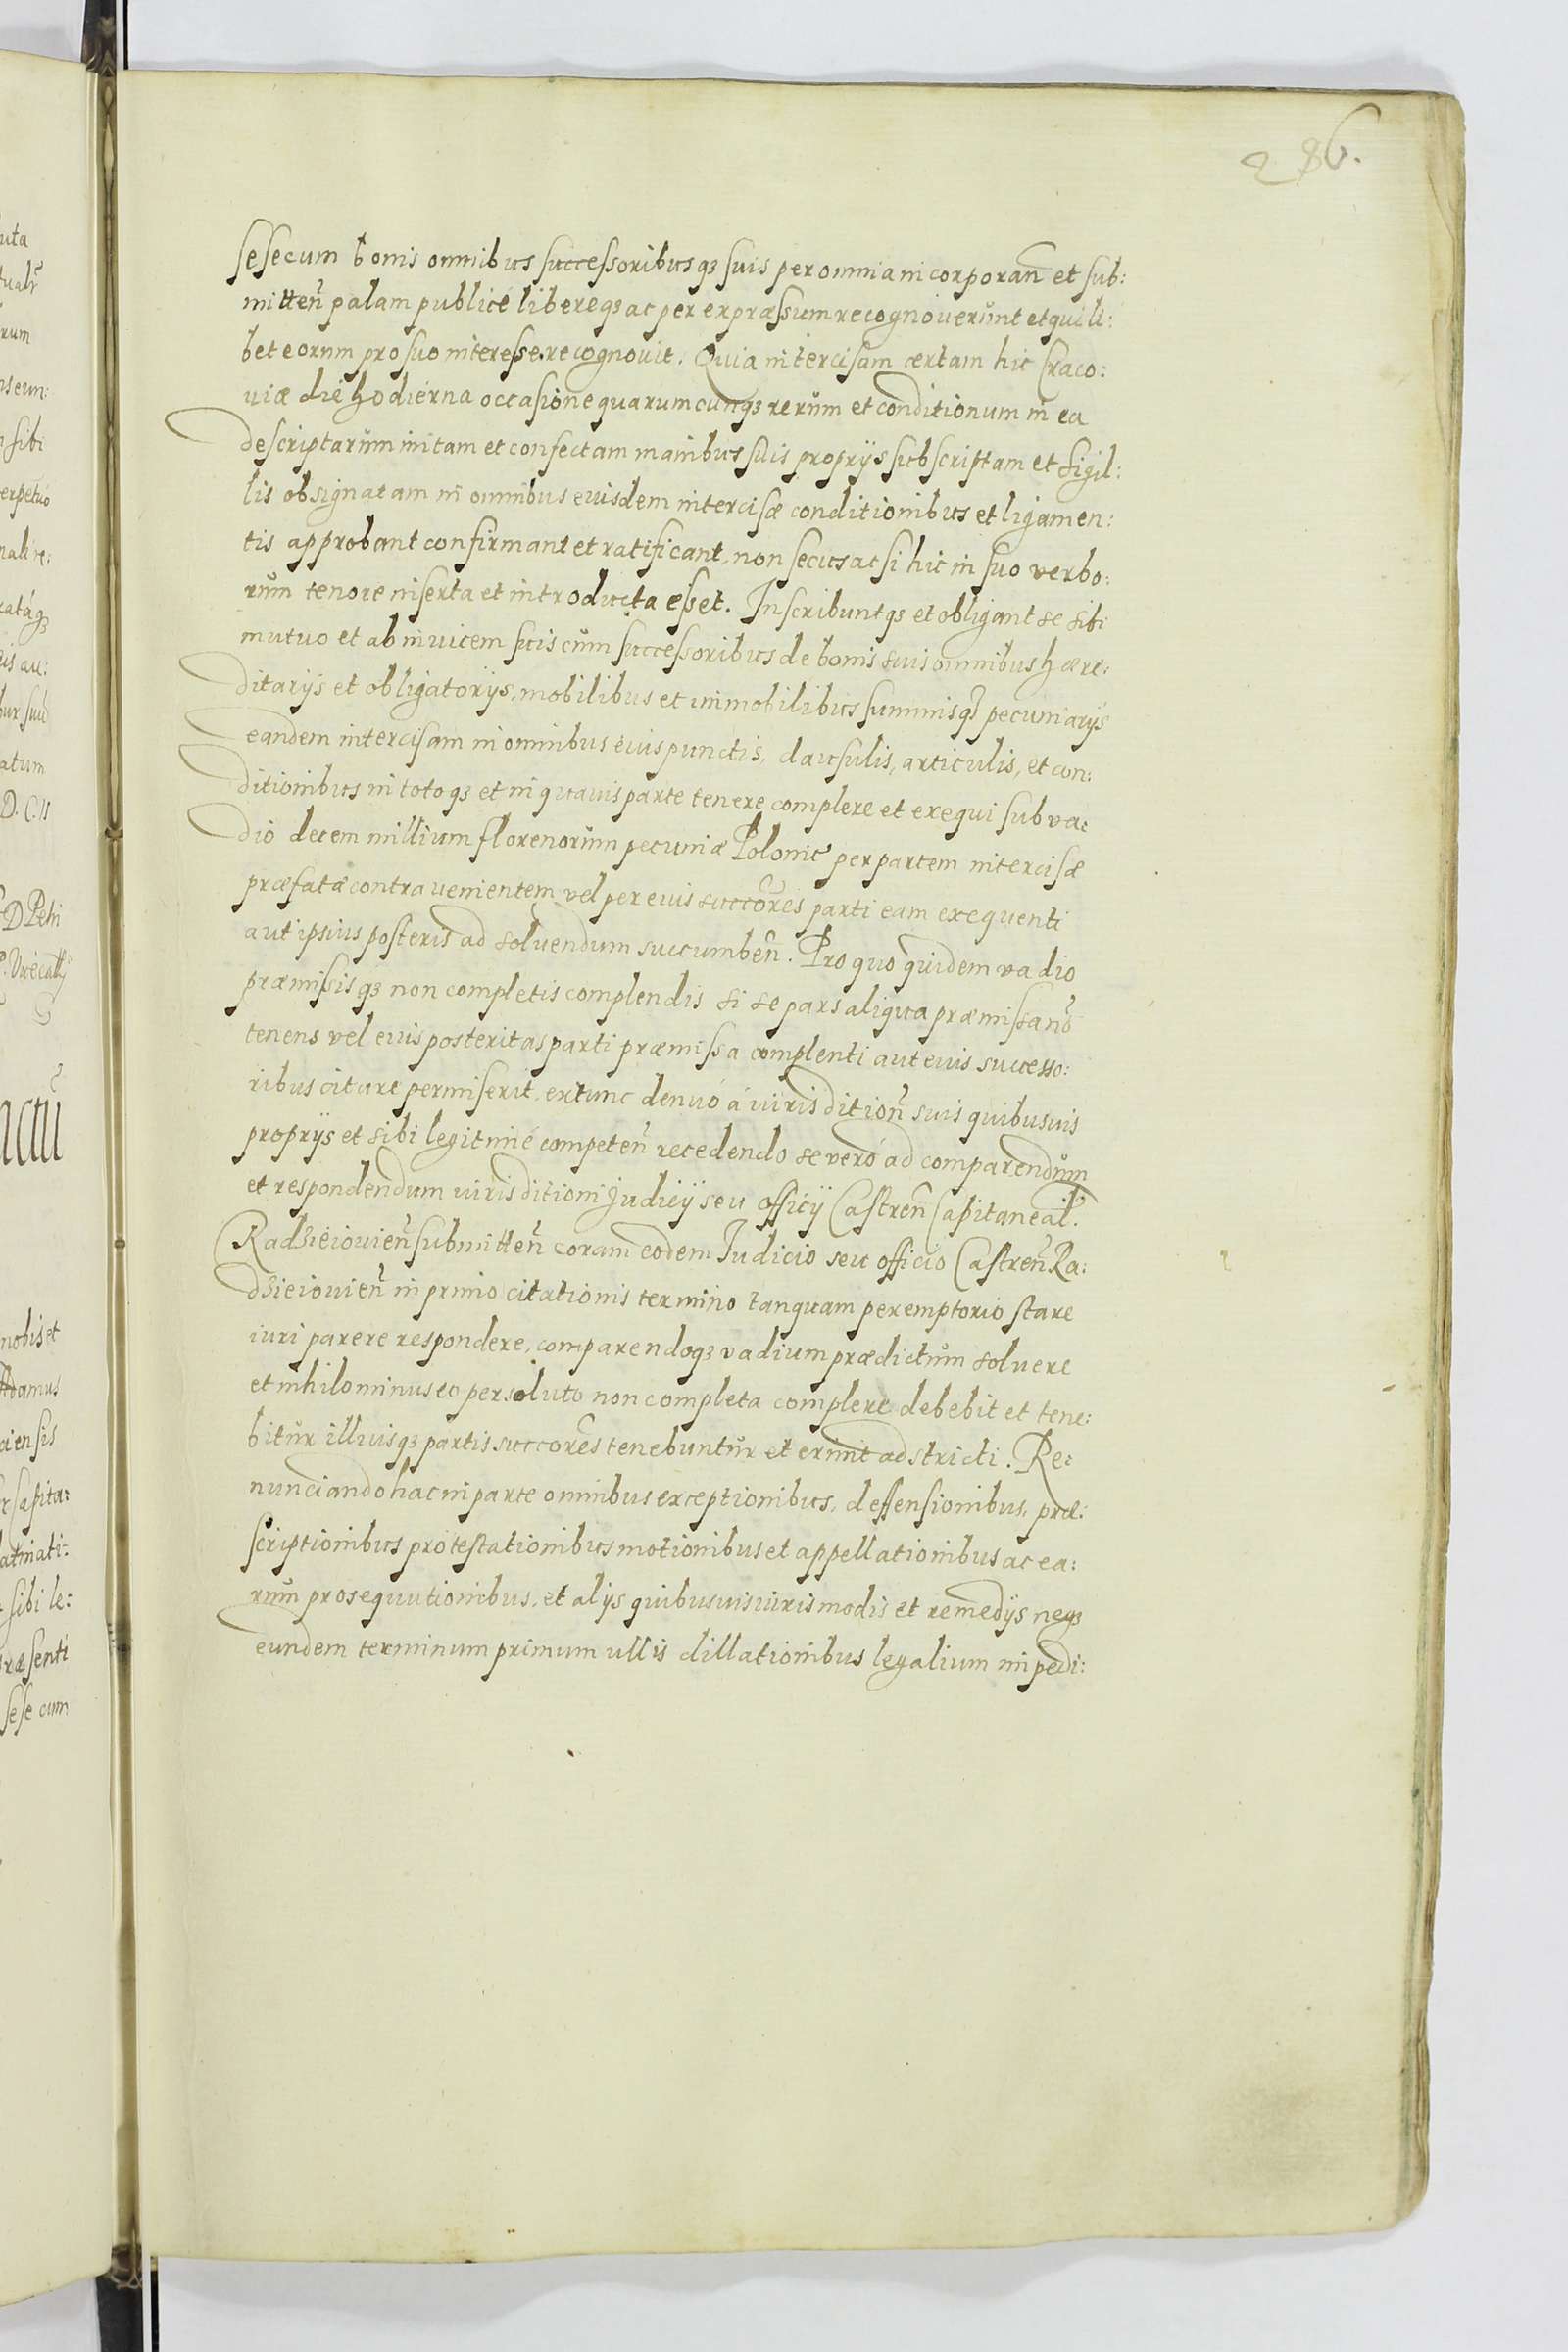 286.
sese cum bonis omnibus successoribusq3 suis per omnia incorporan̄ et sub:
mitten̄ palam publicé libereq3 ac per expræssum recognouerŭnt et quili:
bet eorum pro suo interesse recognouit. Quia intercisam certam hic Craco:
uiæ die hodierna occasione quarumcunq3 rerŭm et conditionum in ea
descriptarŭm initam et confectam manibus suis proprijs subscriptam et sigil:
lis obsignatam in omnibus eiusdem intercisæ conditionibus et ligamen:
tis approbant confirmant et ratificant, non secus ac si hic in suo verbo:
rŭm tenore inserta et introducta esset. Inscribuntq3 et obligant se sibi
mutuo et ab inuicem suis cŭm successoribus de bonis suis omnibus hære:
ditarijs et obligatorijs, mobilibus et immobilibus summisq3 pecuniarijs
eandem intercisam in omnibus eius punctis, clausulis, articulis, et con:
ditionibus in totoq3 et in quauis parte tenere complere et exequi sub va:
dio decem millium florenorŭm pecuniæ Polonic̄ per partem intercisæ
præfatæ contrauenientem vel per eius succōres parti eam exequenti
aut ipsius posteris ad soluendum succumben̄. Pro quo quidem vadio
præmisisq3 non completis complendis si se pars aliqua præmissa nō
tenens vel eius posteritas parti præmissa complenti aut eius successo:
ribus citare permiserit, extunc denuó á iurisdition̄ suis quibusuis
proprijs et sibi legitimé competen̄ recedendo se veró ad comparendŭm
et respondendum iurisditioni Judicij seu officij Castren̄ Capitaneal̄.
Radzieiouien̄ submitten̄ coram eodem Judicio seu officio Castren̄ Ra:
dzieiouien̄ in primo citationis termino tanquam peremptorio stare
iuri parere respondere, comparendoq3 vadium prædictŭm soluere
et nihilominus eo persoluto non completa complere debebit et tene:
bitŭr illiusq3 partis succōres tenebuntŭr et erunt adstricti. Re:
nunciando hac in parte omnibus exceptionibus, deffensionibus, præ:
scriptionibus protestationibus motionibus et appellationibus ac ea:
rŭm prosequutionibus, et alijs quibusuis iuris modis et remedijs neq3
eundem terminum primum ullis dillationibus legalium impedi: